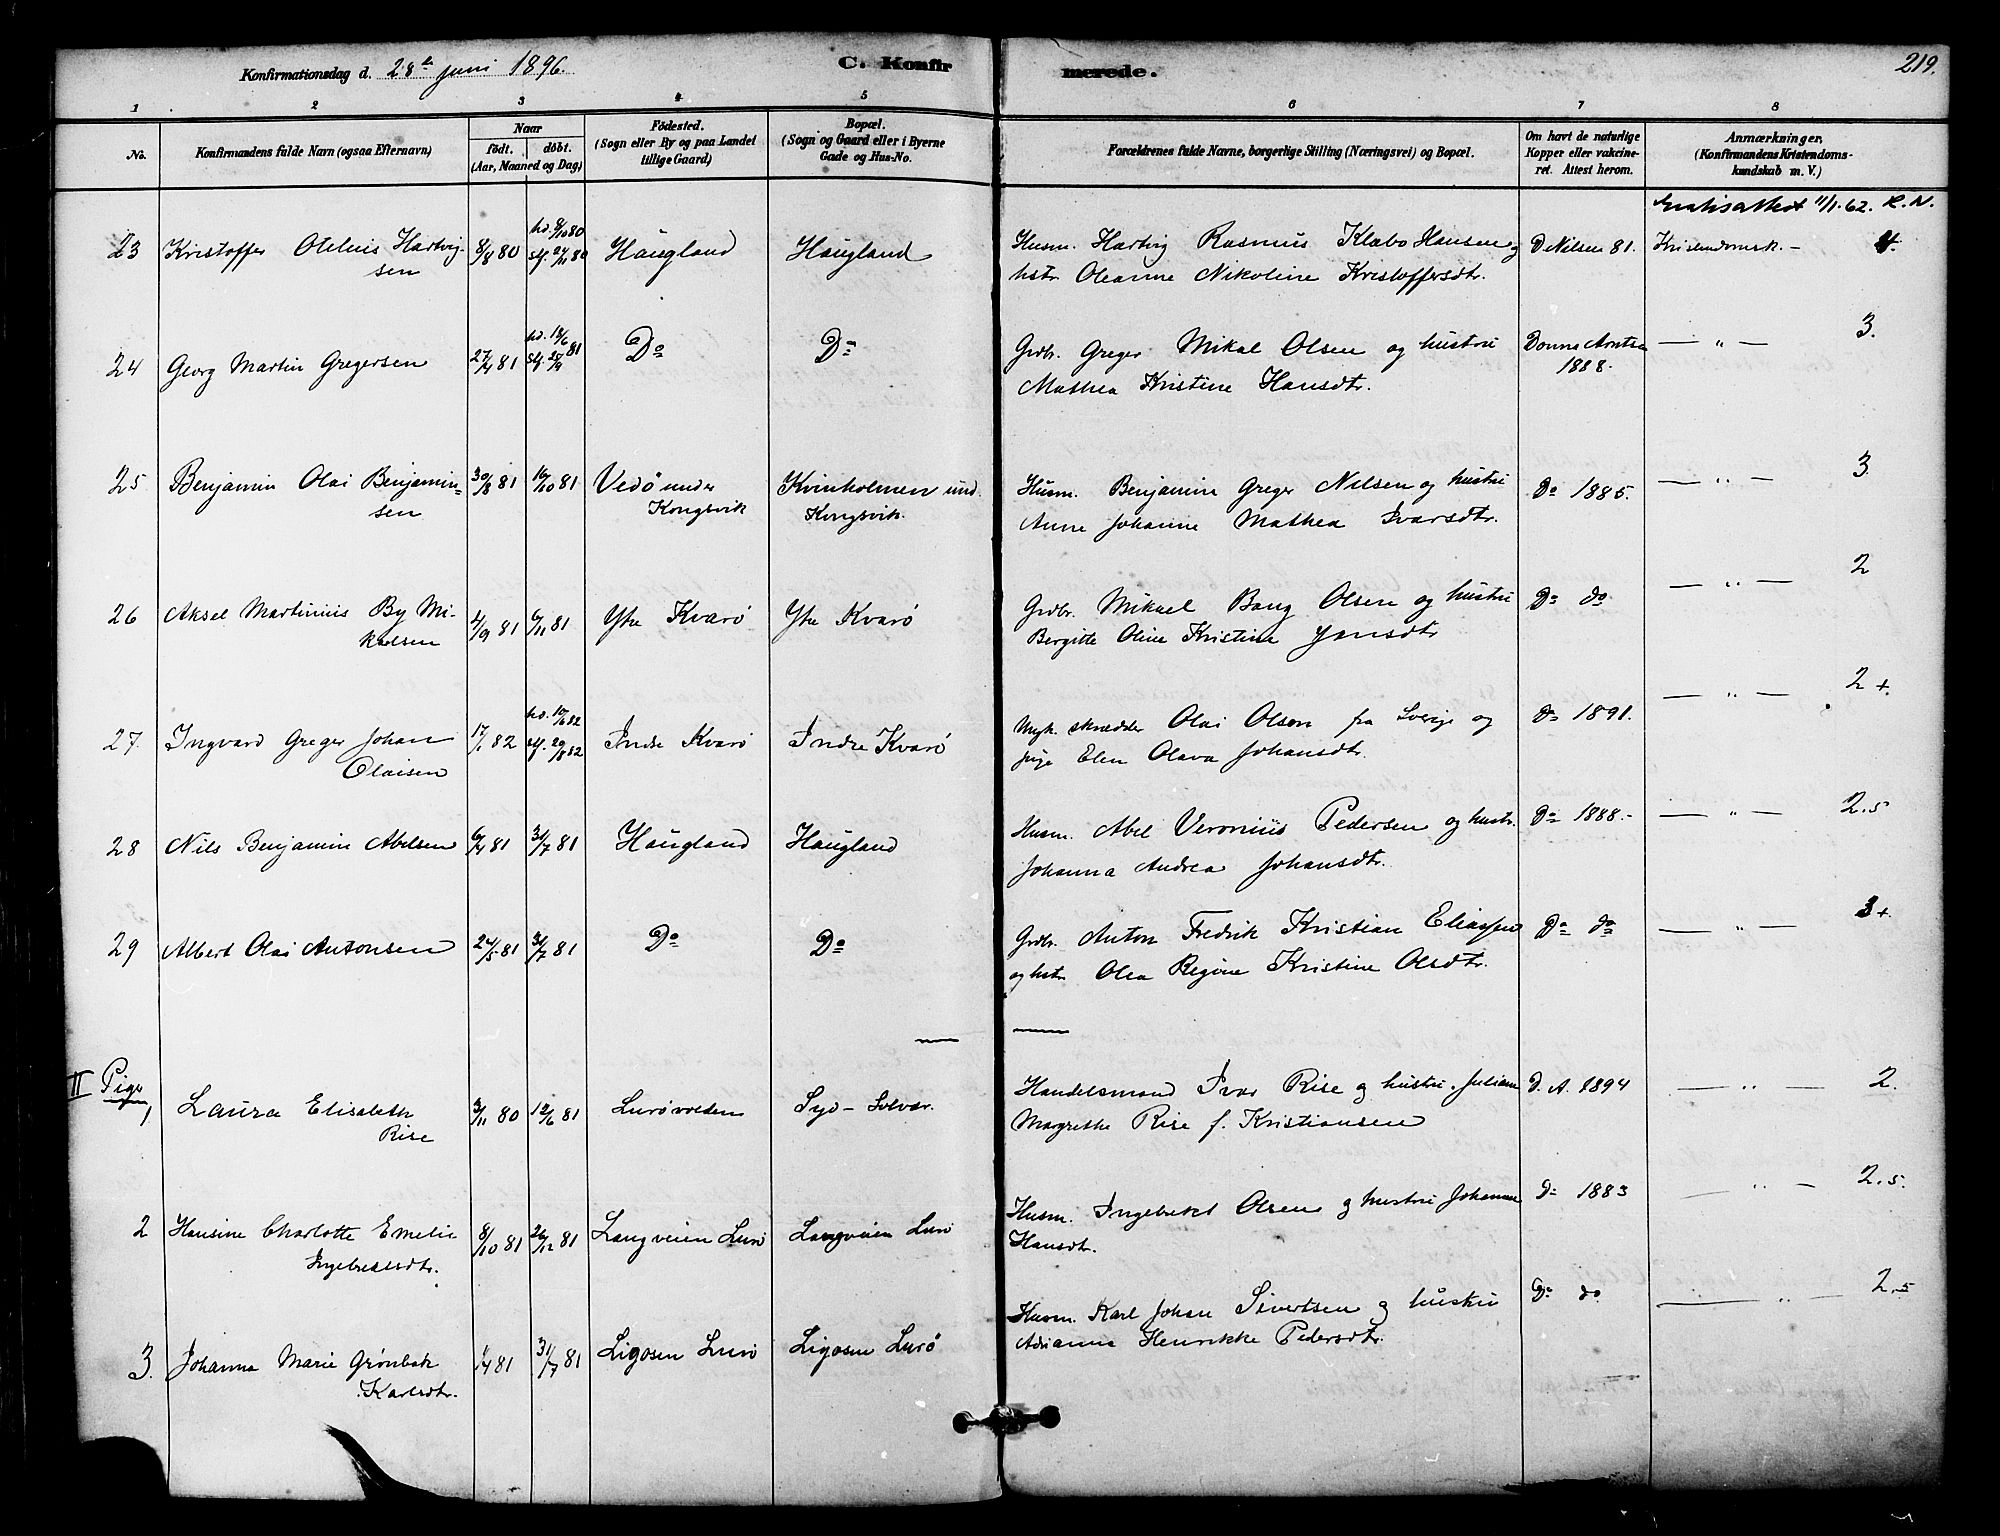 Konfirmationsdag d. 28de Juni 1896.
C. Konfir
merede.
219.
1 2 3 4 5 6 7 8
No.
Konfirmandens fulde Navn (ogsaa Efternavn)
Naar
födt. döbt.
(Aar, Maaned og Dag)
Födested.
(Sogn eller By og paa Landet
tillige Gaard)
Bopæl.
(Sogn og Gaard eller i Byerne
Gade og Hus-No.
Forældrenes fulde Navne, borgerlige Stilling (Næringsvei) og Bopæl.
Om havt de naturlige
Kopper eller vakcine-
ret. Attest herom.
Anmærkninger.
(Konfirmandens Kristendoms-
kundskab m. V.)
Gratisattest 11/1.62. K.N.
23 Kristoffer Olelius Hartvig- 8/8 80 hd. 9/10 80 Haugland Haugland Husm. Hartvig Rasmus Klæbo Hansen og D Nilsen 81. Kristendomsk. – 4.
sen stf. 27/11 80 hstr. Oleanne Nikoline Kristoffersdtr.
24 Georg Martin Gregersen 27/4 81 hd. 18/6 stf. 25/9 81 Do Do Grdbr. Greger Mikal Olsen og hustru Dønna Arntsen — " — 3.
Mathea Kristine Hansdtr. 1888.
25 Benjamin Olai Benjamin- 30/8 81 16/10 81 Vedö under Kvinholmen und. Husm. Benjamin Greger Nilsen og hustru Do 1885. — " — 3
sen Kongsvik Kongsvik. Anne Johanne Mathea Ivarsdtr.
26 Aksel Martinus By Mi- 4/9 81 6/11 81 Ytre Kvarö Ytre Kvarö Grdbr. Mikael Bang Olsen og hustru Do do — " — 2
kaelsen Bergitte Oline Kristine Jonsdtr
27. Ingvard Greger Johan 17/1 82 hd. 10/6 82 Indre Kvarö Indre Kvarö Ungk. skrædder Olai Olson fra Sverige og do 1891. — " — 2+.
Olaisen stf. 20/8 82 pige Elen Olava Johansdtr.
28 Nils Benjamin Abelsen 6/4 81 31/7 81 Haugland Haugland Husm. Abel Veronius Pedersen og hustr. Do 1888.- — " — 2.5
Johanna Andrea Johansdtr.
29 Albert Olai Antonsen 24/5 81 31/7 81 Do Do Grdbr. Anton Fredrik Kristian Eliassen Do do — " — 3+.
og hstr. Olea Regine Kristine Olsdtr.
II Piger
1 Laura Elisabeth 3/11 80 12/6 81 Lurövolden Syd-Solvær. Handelsmand Ivar Rise og hustru Juliane D. A. 1894 — " — 2.
Rise Margrethe Rise f. Kristiansen
2 Hansine Charlotte Emelie 8/10 81 26/12 81 Langveien Lurö Langveien Lurö Husm. Ingebrekt Olsen og hustru Johanna do 1883 " — 2.5.
Ingebrektsdtr. Hansdtr.
3. Johanna Marie Grönbek 1/4 81 31/7 81 Ligosen Lurö Ligosen Lurö Husm. Karl Johan Sivertsen og hustru Do do — " — 2.5
Karlsdtr. Adrianna Henrikke Pedersdtr.